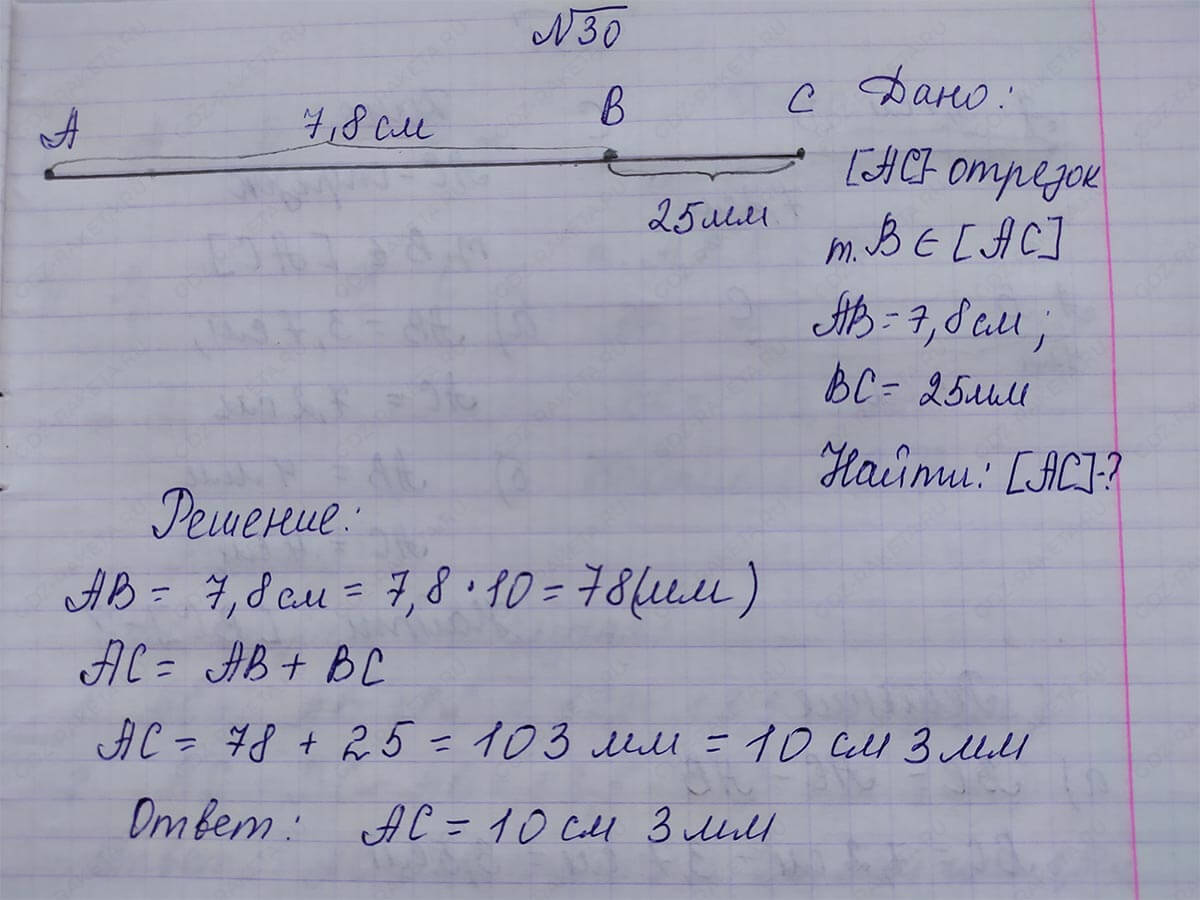 №30
A 7,8 см B C
25 мм
Дано:
[AC]- отрезок
т. B ∈ [AC]
AB = 7,8 см;
BC = 25 мм
Найти: [AC]-?
Решение:
AB = 7,8 см = 7,8 · 10 = 78 (мм)
AC = AB + BC
AC = 78 + 25 = 103 мм = 10 см 3 мм
Ответ: AC = 10 см 3 мм